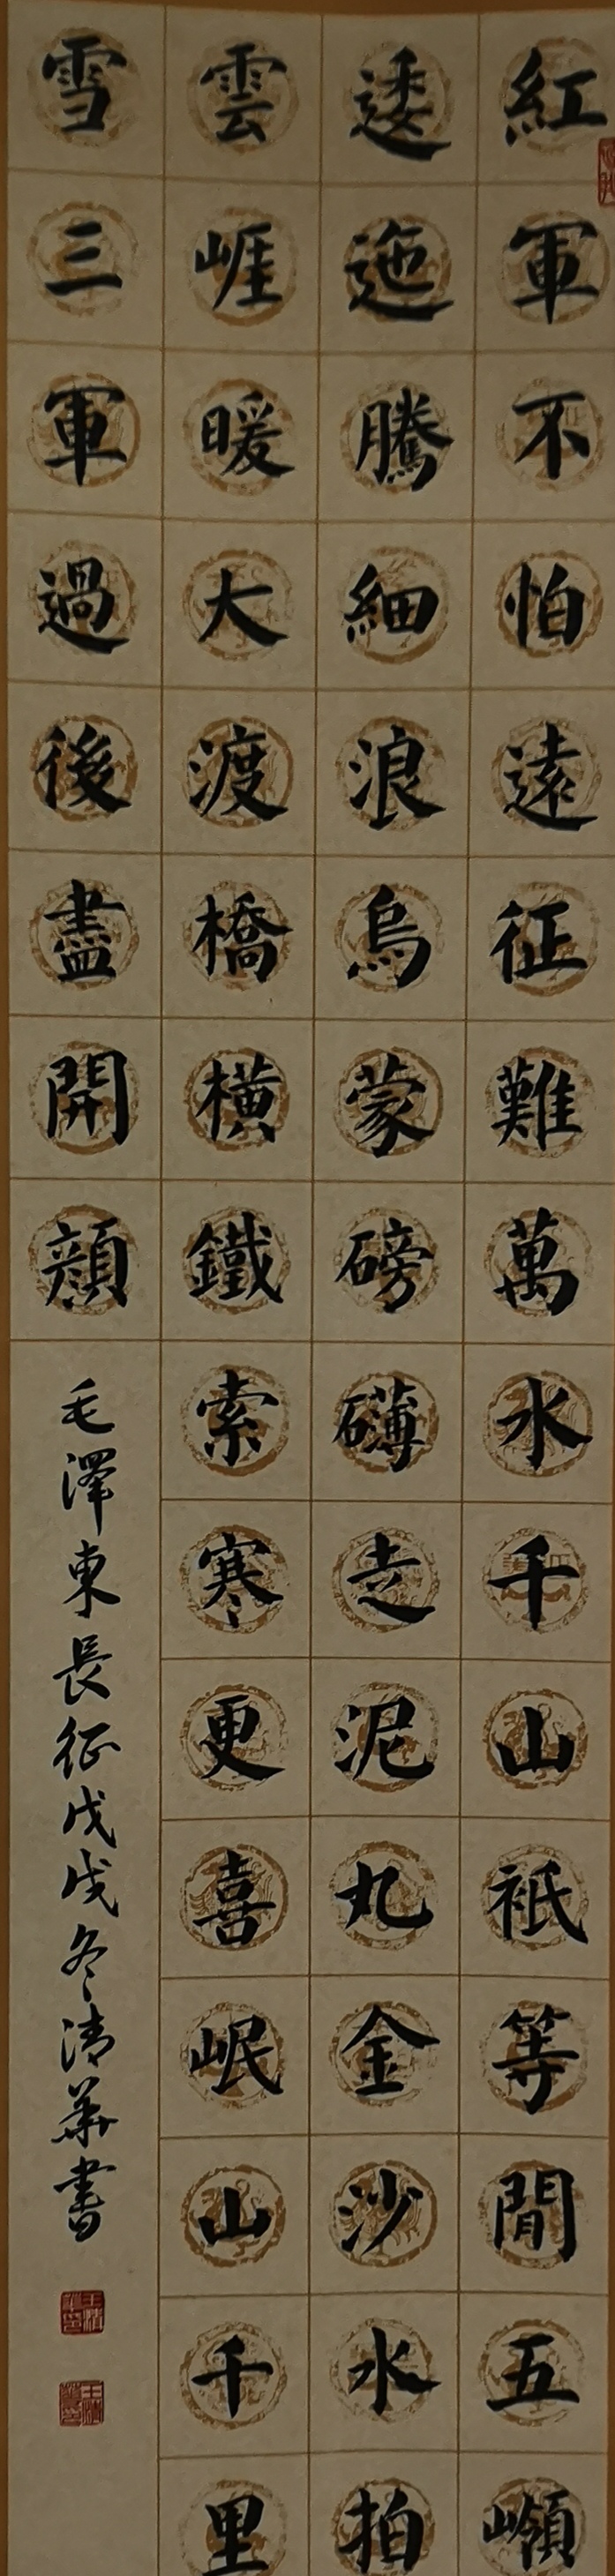 紅軍不怕遠征難萬水千山祇等閒五嶺
逶迤騰細浪烏蒙磅礴走泥丸金沙水拍
雲崖暖大渡橋橫鐵索寒更喜岷山千里
雪三軍過後盡開顏
毛澤東長征戊戌冬清華書